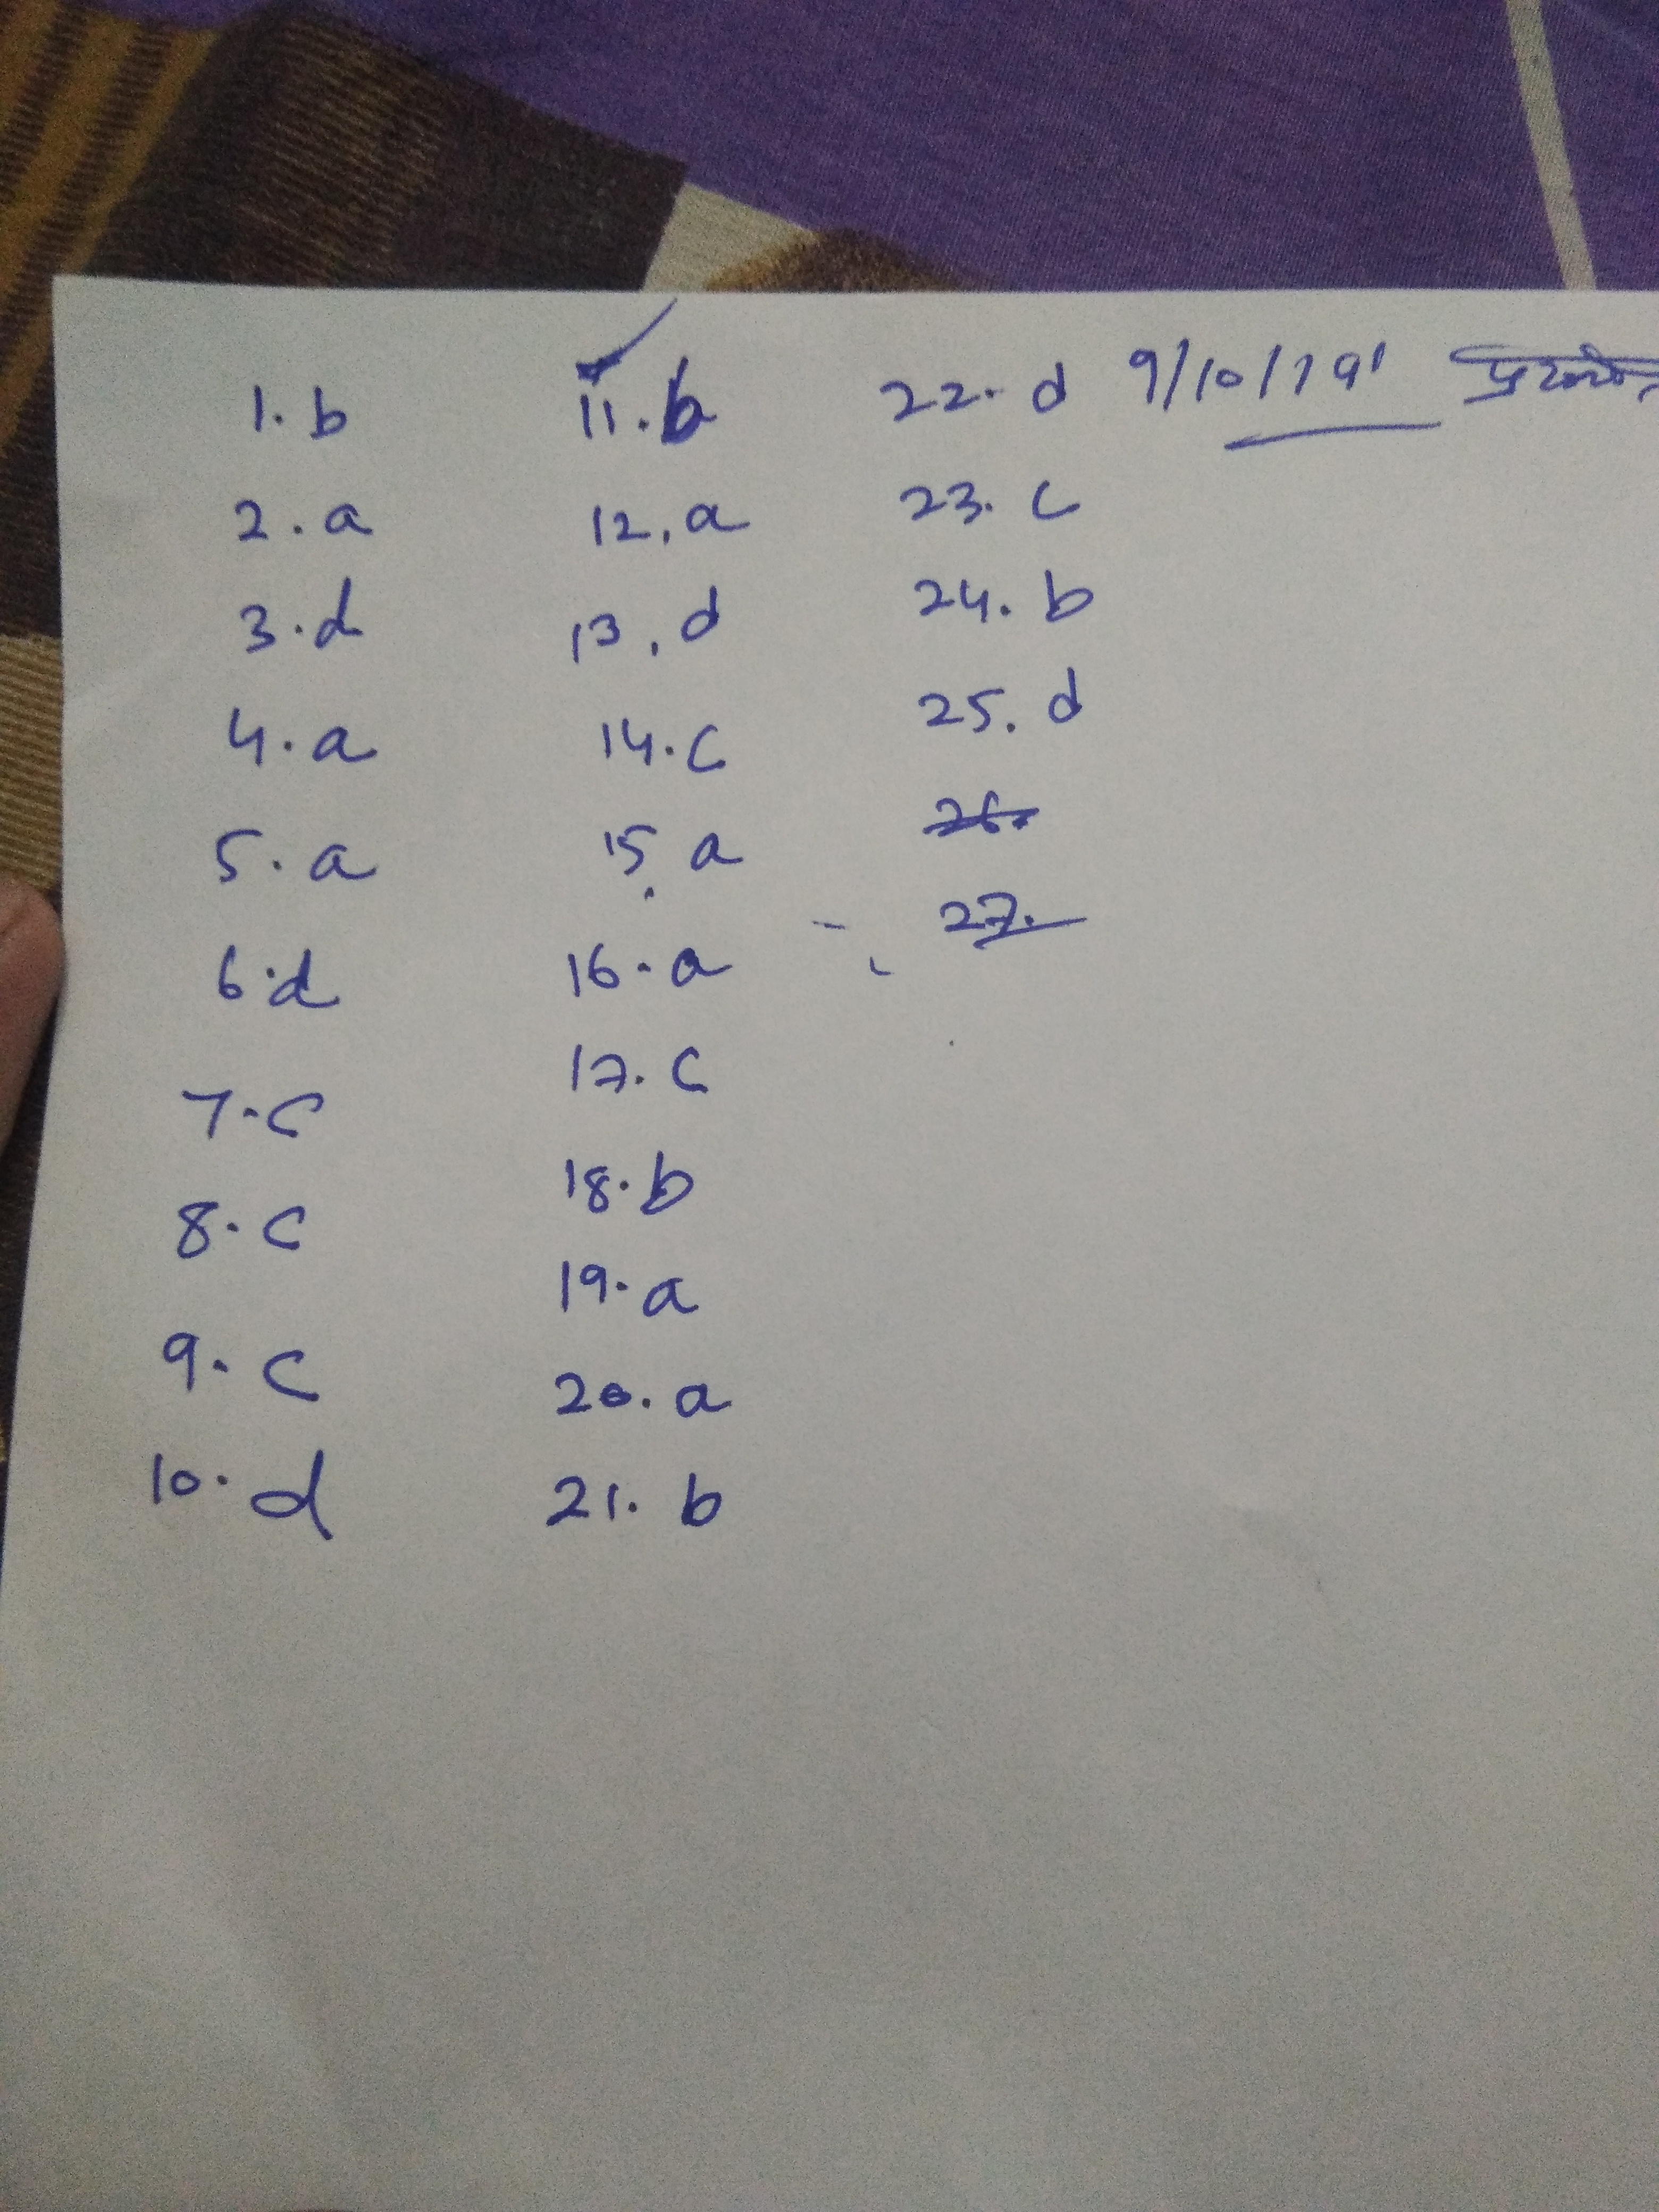 1. b
2. a
3. d
4. a
5. a
6. d
7. c
8. c
9. c
10. d
11. b
12. a
13. d
14. c
15. a
16. a
17. c
18. b
19. a
20. a
21. b
22. d
23. c
24. b
25. d
26.
27.
9/10/19